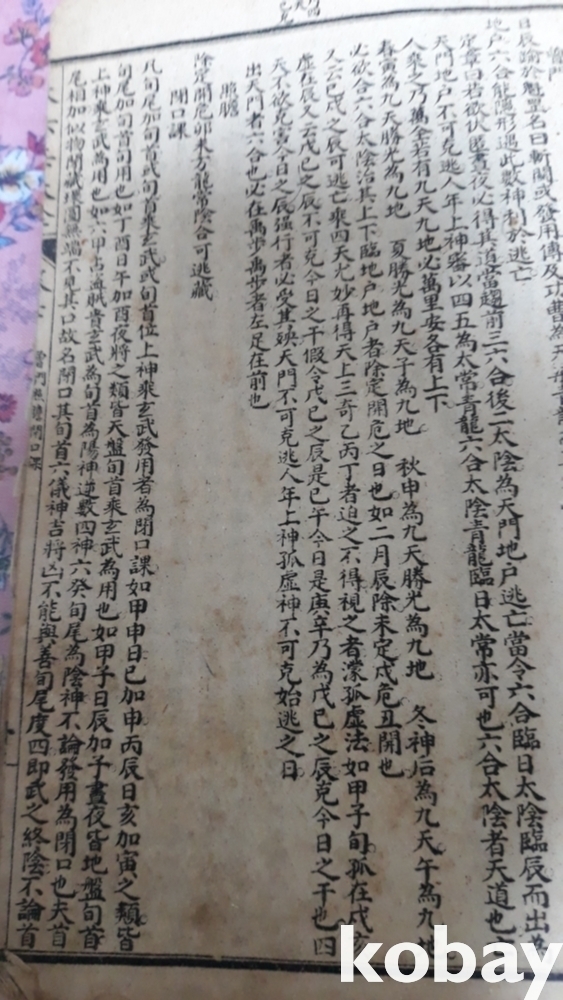 日辰論於魁罡名曰斬関或發用傳及功曹為天
地户六合能隱形遇此數神利於逃亡
定章曰若欲伏匿晝夜必得其道當趨前三六合後二太陰為天門地户逃亡當令六合臨日太陰臨辰而出
天門地户不可克逃人年上神審以四五為太常青龍六合太陰青龍臨日太常亦可也六合太陰者天道也
人乘之乃萬全若有九天九地必萬里安各有上下
春寅為九天勝光為九地 夏勝光為九天子為九地 秋申為九天勝光為九地 冬神后為九天午為九地
必欲合六合太陰治其上下臨地户地户者除定開危之日也如二月辰除未定戌危丑開也
又云巳戌之辰可逃亡乘四天尤妙再得天上三奇乙丙丁者迫之不得視之者濛孤虚法如甲子旬孤在戌亥
虚在辰又云戊己之辰不可克今日之干假令戊己之辰是巳午今日是庚辛乃為戊己之辰克今日之干也四
天不欲克寅今日之辰强行者必受其殃天門不可克逃人年上神孤虚神不可克始逃之日
出天門者六合也必在禹步禹步者左足在前也
照膽
除定開危卯未方龍常陰合可逃藏
閉口課
凡旬尾加旬首或旬首乘玄武武旬首位上神乘玄武發用者為閉口課如甲申日巳加申丙辰日亥加寅之類皆
旬尾加旬首旬用也如丁酉日午加酉夜將之類皆天盤旬首乘玄武為用也如甲子日辰加子晝夜皆地盤旬首
上神乘玄武為用也如六甲占盗賊責玄武為旬首為陽神逆數四神六癸旬尾為陰神不論發用為閉口也夫首
尾相加似物閉藏環圓無端不見其口故名閉口其旬首六儀神吉將凶不能與善旬尾度四即武之終陰不論首
閉口課
kobay